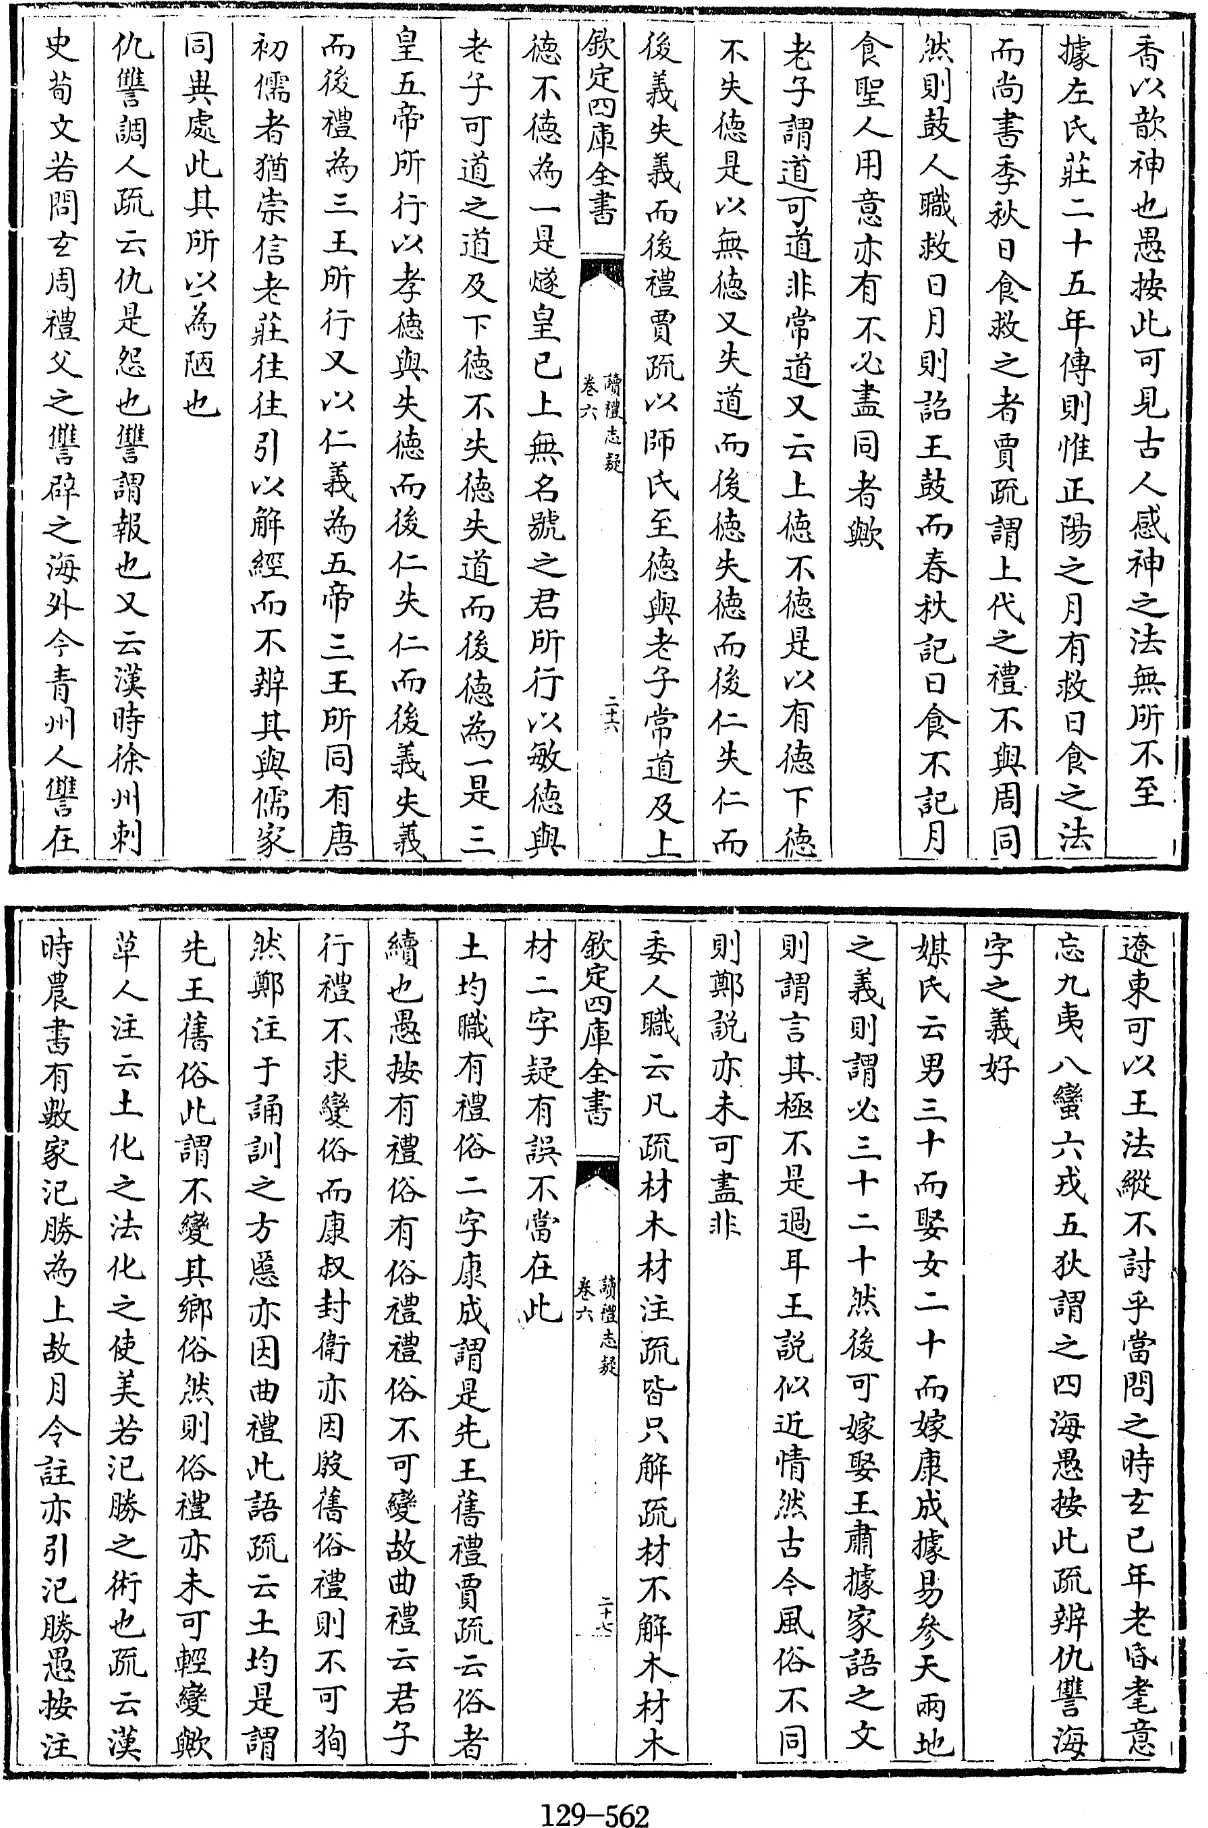 香以歆神也愚按此可見古人感神之法無所不至
據左氏莊二十五年傳則惟正陽之月有救日食之法
而尚書季秋日食救之者賈疏謂上代之禮不與周同
然則鼓人職救日月則詔王鼓而春秋記日食不記月
食聖人用意亦有不必盡同者歟
老子謂道可道非常道又云上德不德是以有德下德
不失德是以無德又失道而後德失德而後仁失仁而
後義失義而後禮賈疏以師氏至德與老子常道及上
欽定四庫全書
讀禮志疑
卷六
二十六
德不德為一是燧皇已上無名號之君所行以敏德與
老子可道之道及下德不失德失道而後德為一是三
皇五帝所行以孝德與失德而後仁失仁而後義失義
而後禮為三王所行又以仁義為五帝三王所同有唐
初儒者猶崇信老莊往往引以解經而不辯其與儒家
同異處此其所以為陋也
仇讐調人疏云仇是怨也讐謂報也又云漢時徐州刺
史荀文若問玄周禮父之讐辟之海外今青州人讐在
遼東可以王法縱不討乎當問之時玄已年老昏耄意
忘九夷八蠻六戎五狄謂之四海愚按此疏辨仇讐海
字之義好
媒氏云男三十而娶女二十而嫁康成據易參天兩地
之義則謂必三十二十然後可嫁娶王肅據家語之文
則謂言其極不是過耳王說似近情然古今風俗不同
則鄭說亦未可盡非
委人職云凡疏材木材注疏皆只解疏材不解木材木
欽定四庫全書
讀禮志疑
卷六
二十七
材二字疑有誤不當在此
土均職有禮俗二字康成謂是先王舊禮賈疏云俗者
續也愚按有禮俗有俗禮禮俗不可變故曲禮云君子
行禮不求變俗而康叔封衛亦因殷舊俗禮則不可狥
然鄭注于誦訓之方慝亦因曲禮此語疏云土均是謂
先王舊俗此謂不變其鄉俗然則俗禮亦未可輕變歟
草人注云土化之法化之使美若氾勝之術也疏云漢
時農書有數家氾勝為上故月令註亦引氾勝愚按注
129-562